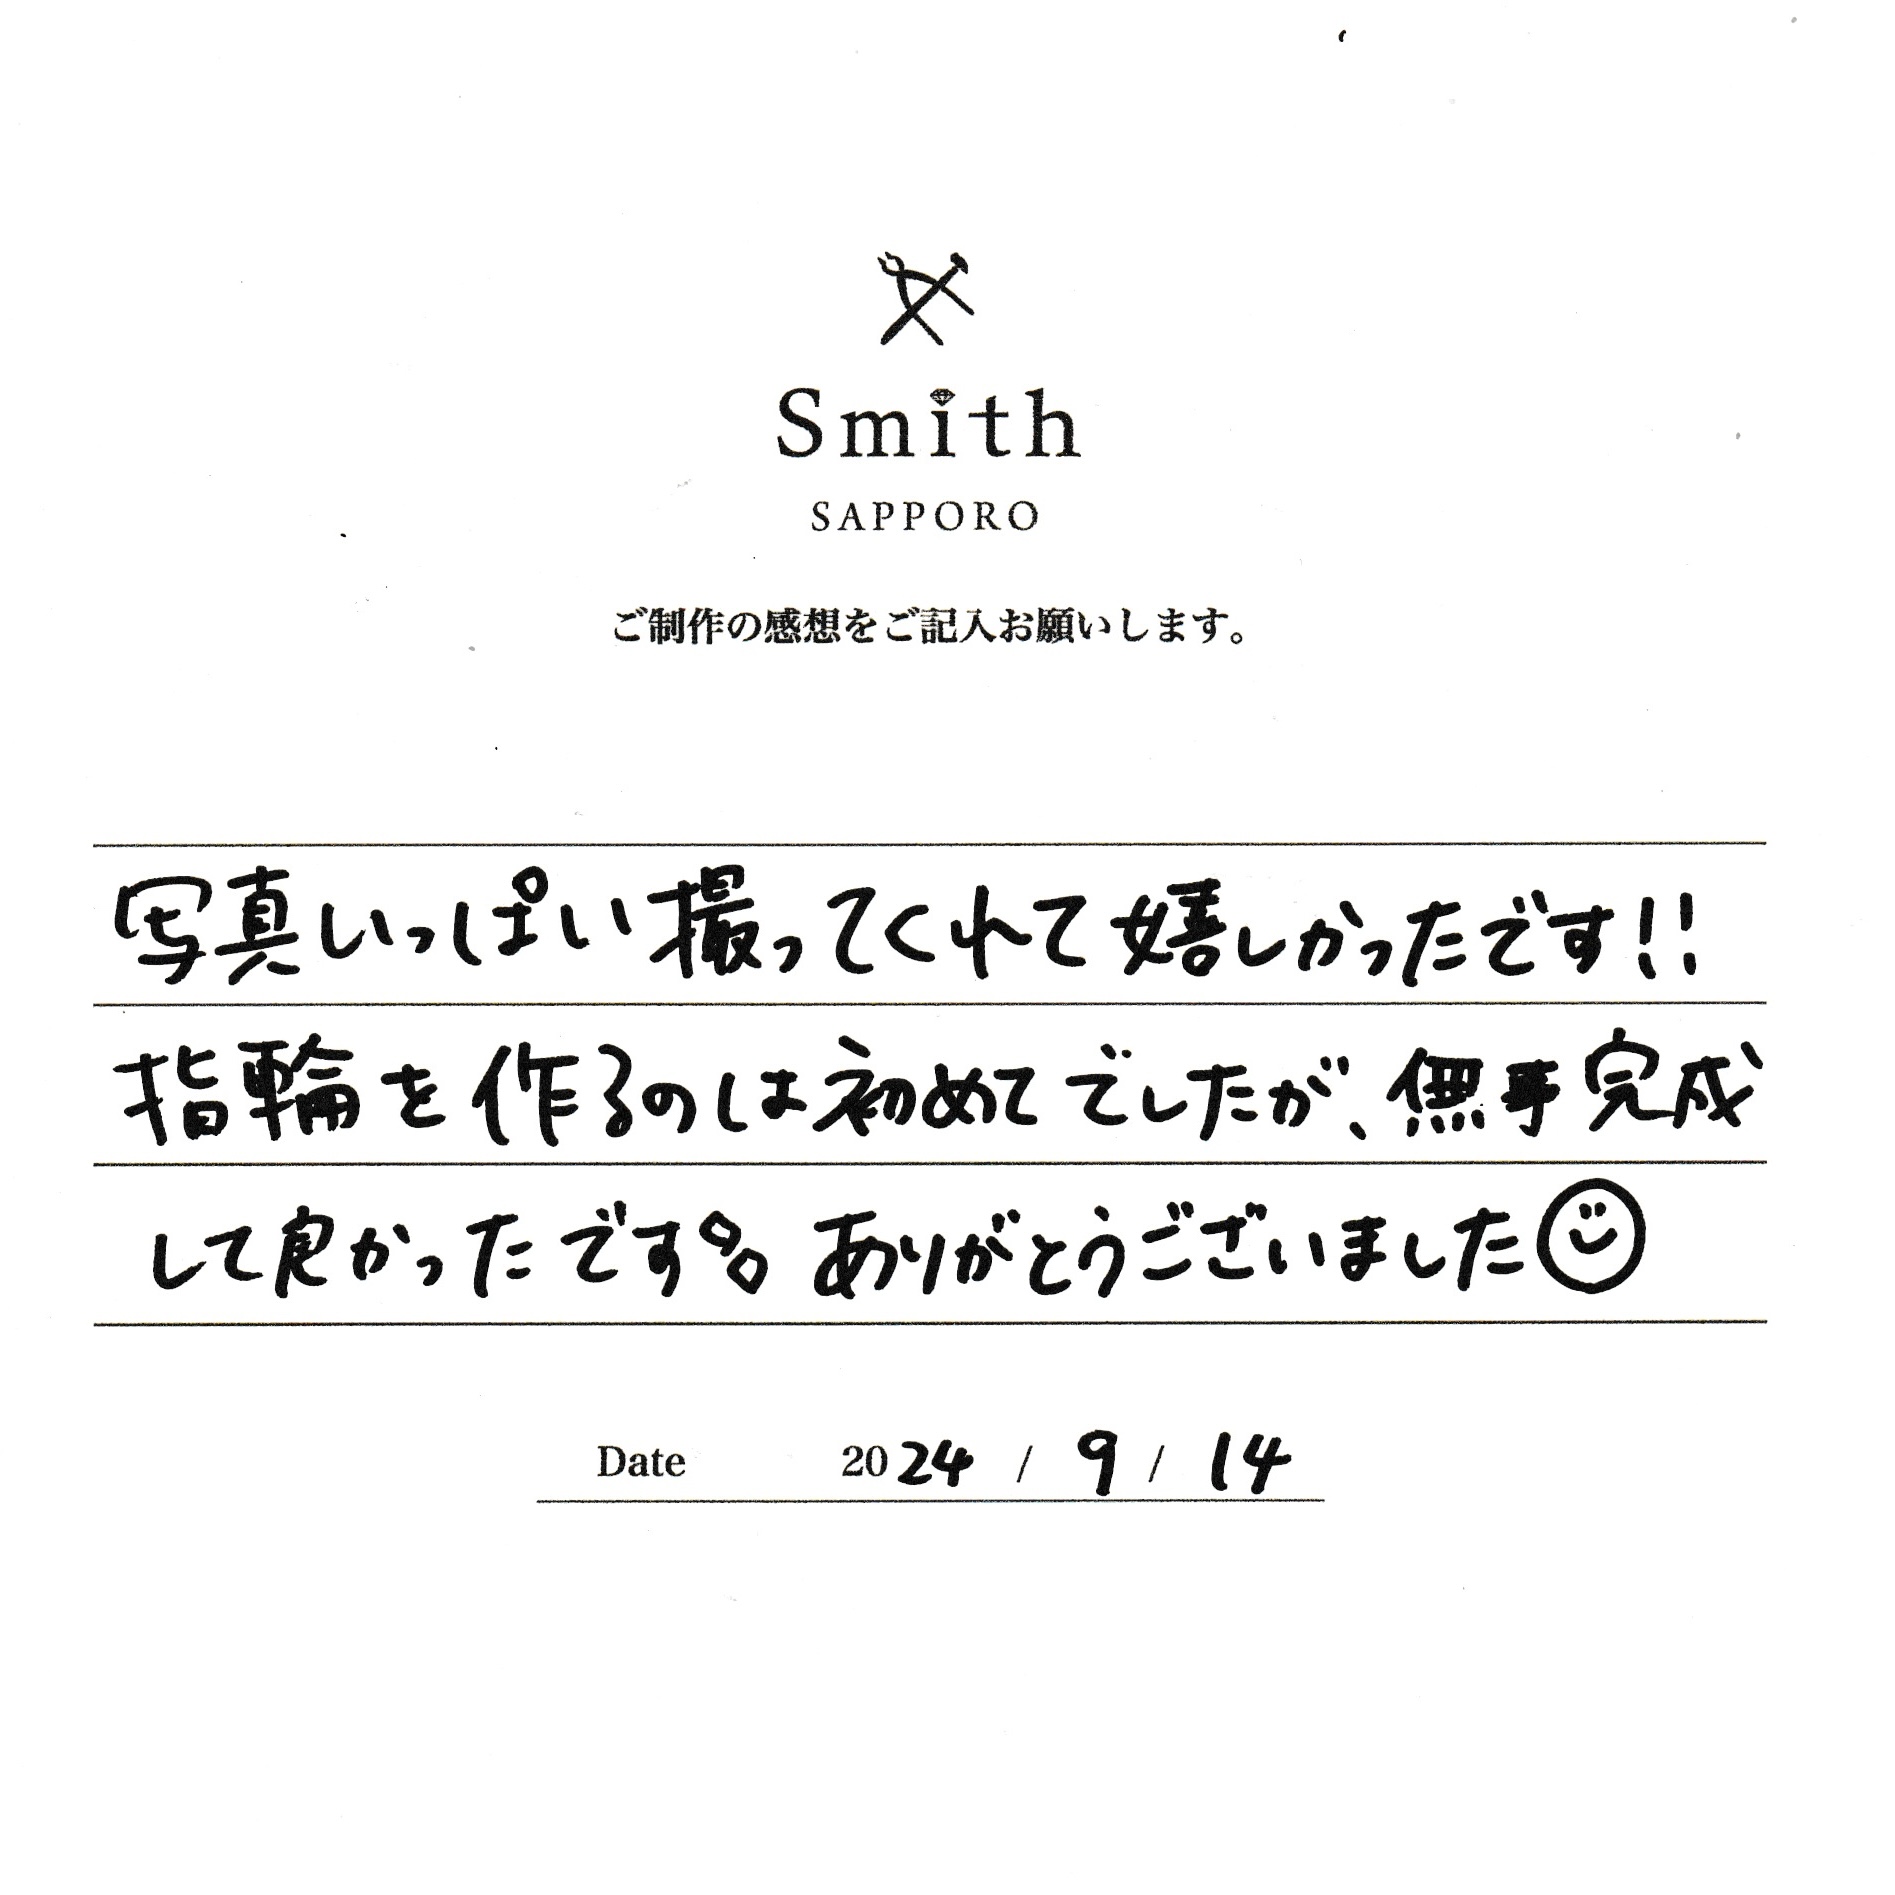 Smith
SAPPORO
ご制作の感想をご記入お願いします。
写真いっぱい撮ってくれて嬉しかったです!!
指輪を作るのは初めてでしたが、無事完成
して良かったです。ありがとうございました
Date 2024 / 9 / 14